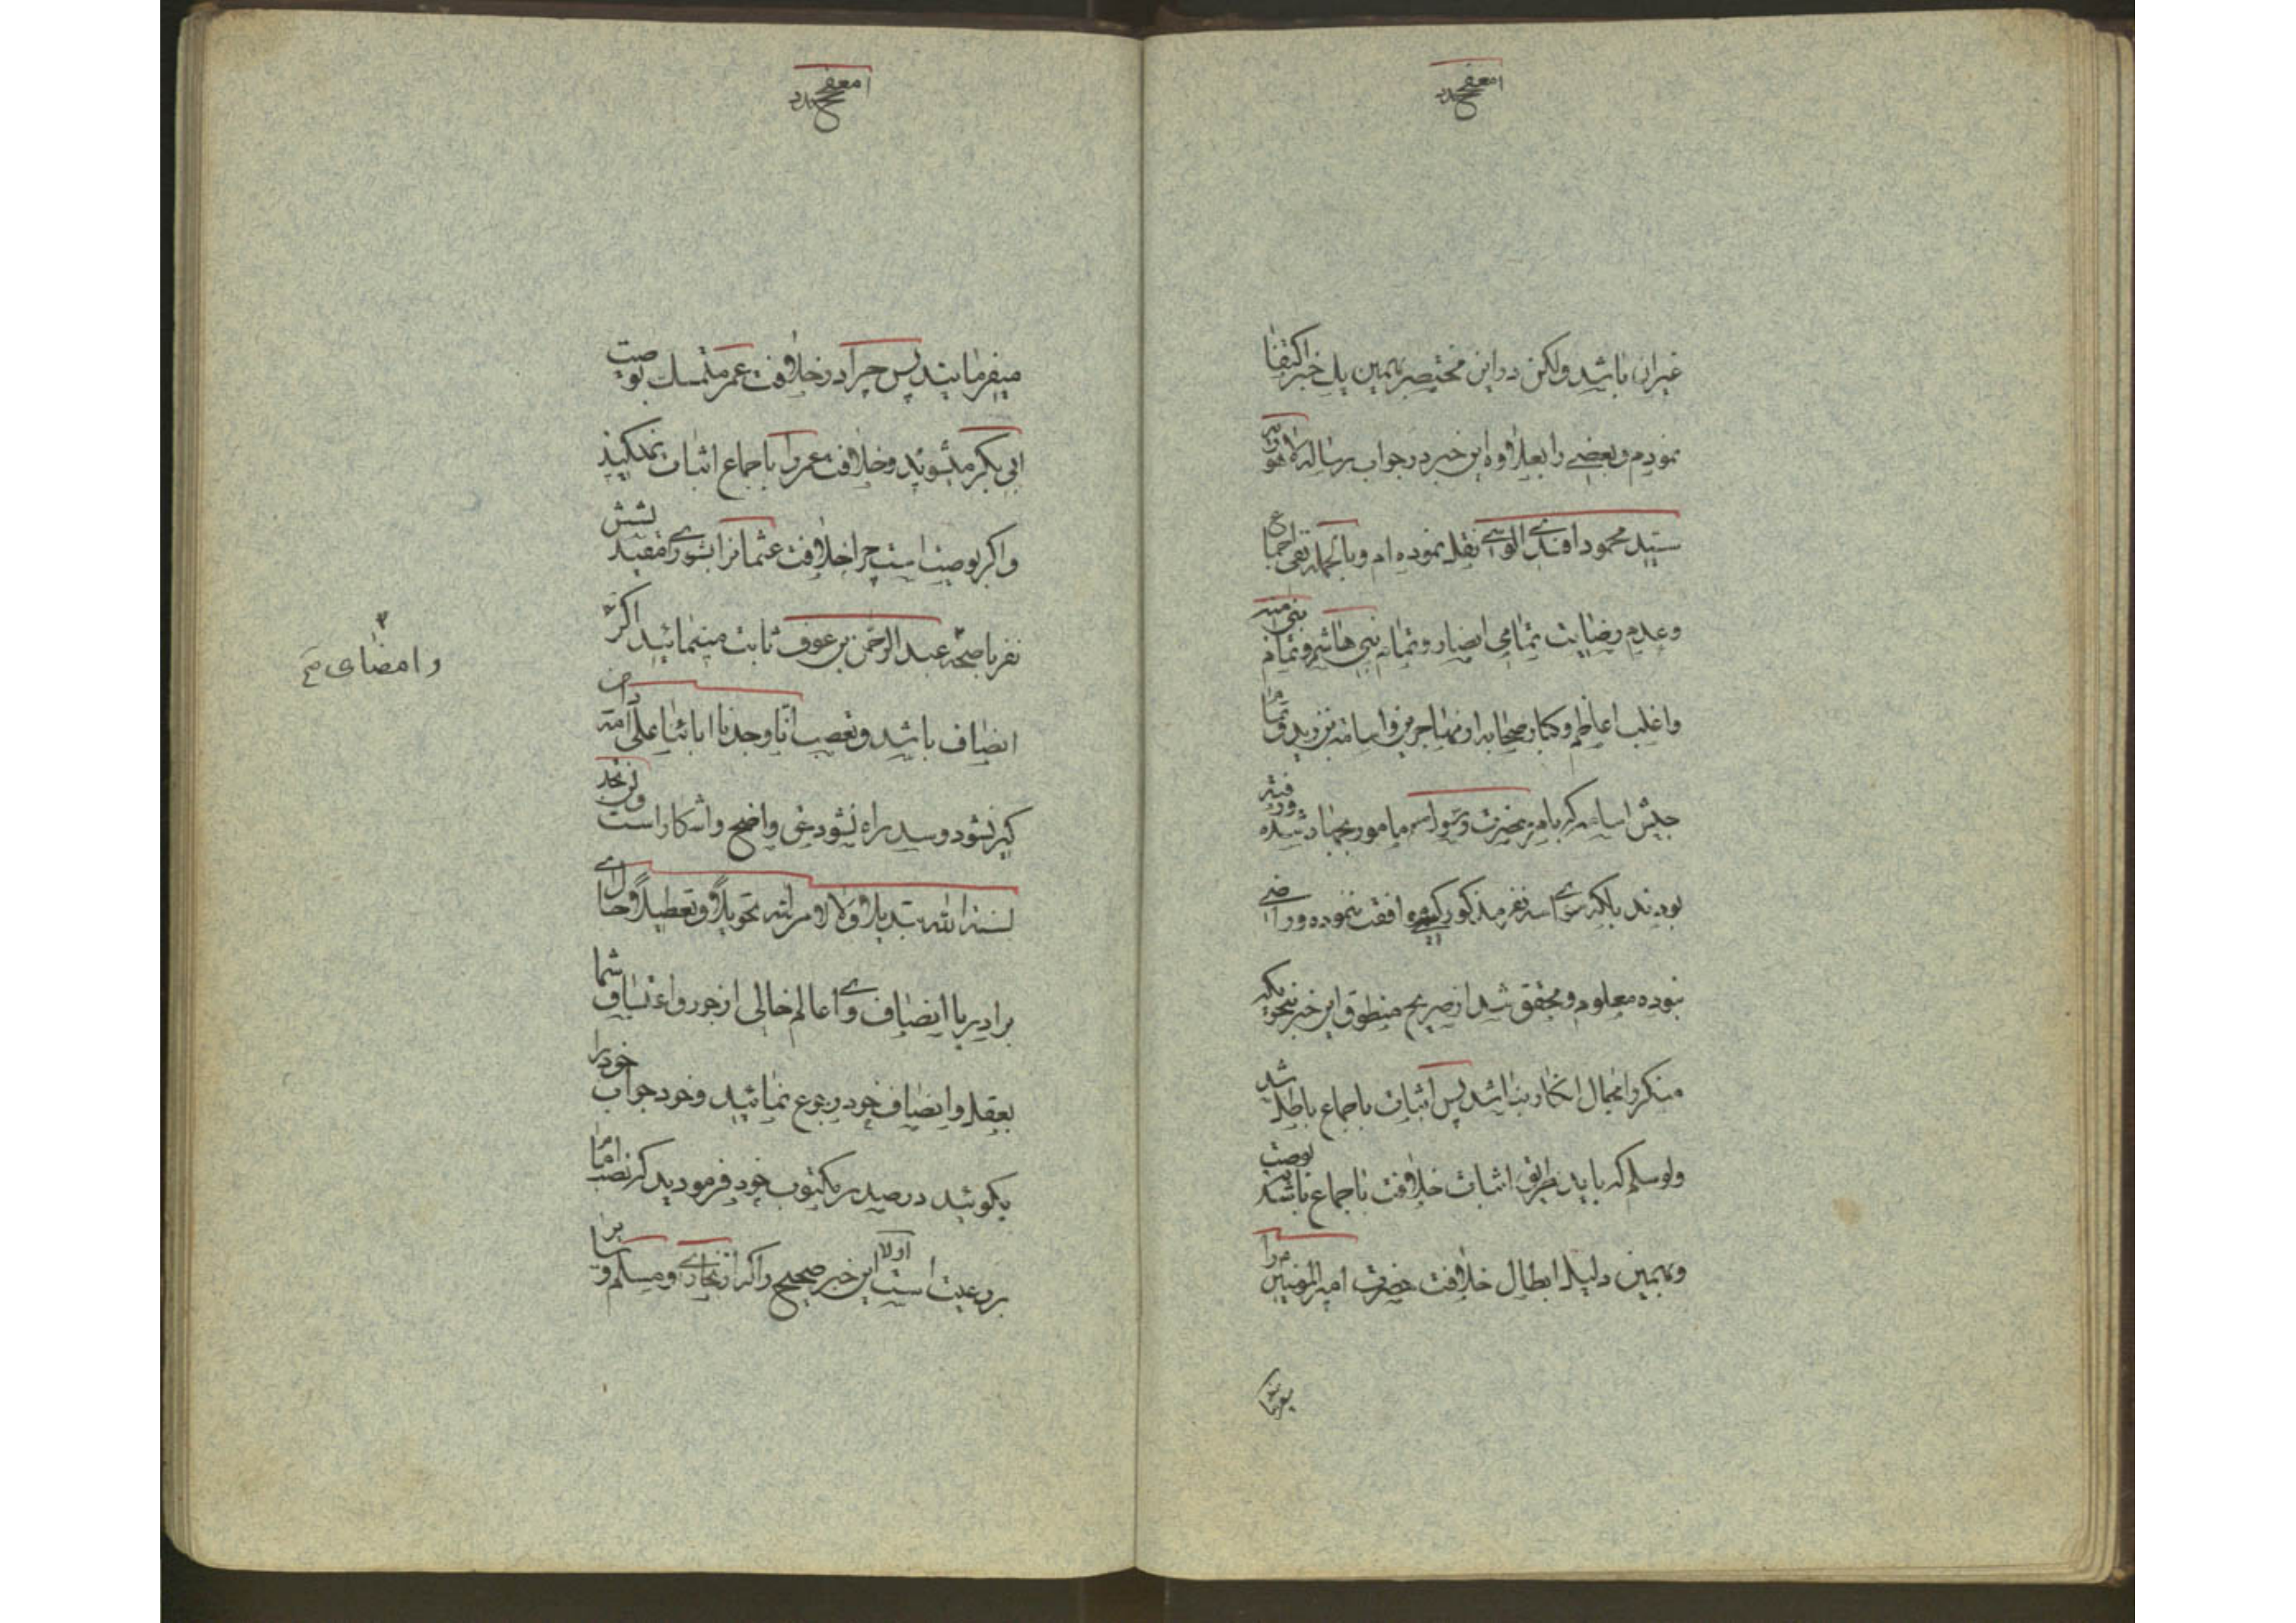 غیران باشد ولکن در این مختصر بهمین یک خبر اکتفا
نمودم و بعضی را بعلاوه این خبر در جواب رساله لاهوریه
سید محمود افندی الوسی نقل نموده ام و بالجمله نفی اجماع
وعدم رضایت تمامی انصار و تمام بنی هاشم و تمام بنی امیه
واغلب اعاظم و کبار صحابه از مهاجرین و اسامة بن زید و تمام
جیش اسامه که بامر حضرت رسول مامور بجهاد شده
بودند بلکه سوای سه نفر مذکور کسی موافقت ننموده و راضی
نبوده معلوم و محقق شد از صریح منطوق این خبر بنحویکه
منکر را مجال انکار نباشد پس اثبات باجماع باطل شد
ولو سلم که باید طریق اثبات خلافت باجماع باشد بوصیت
و بهمین دلیل ابطال خلافت حضرت امیرالمؤمنین را
میفرمایند پس چرا در خلافت عمر متمسک بوصیت
ابی بکر میشوند و خلافت عمر را باجماع اثبات نمیکنید
واگر بوصیت است چرا خلافت عثمانرا بشوری مقید بشش
نفر با صحه عبدالرحمن بن عوف ثابت مینمائید اگر
وامضای
انصاف باشد و تعصب انا وجدنا ابائنا علی امة دامن
گیر نشود و سد راه نشود حق واضح و آشکار است ولن تجد
لسنة الله تبدیلا ولا لامر الله تحویلا و تعطیلا و حال ای
برادر با انصاف و ای عالم خالی از جور و اعتساف شما
بعقل و انصاف خود رجوع نمائید و خود جواب خود را
بگوئید در صدر مکتوب خود فرمودید که نصب امام
بر رعیت است اولا این خبر صحیح را که از بخاری و مسلم و سایر